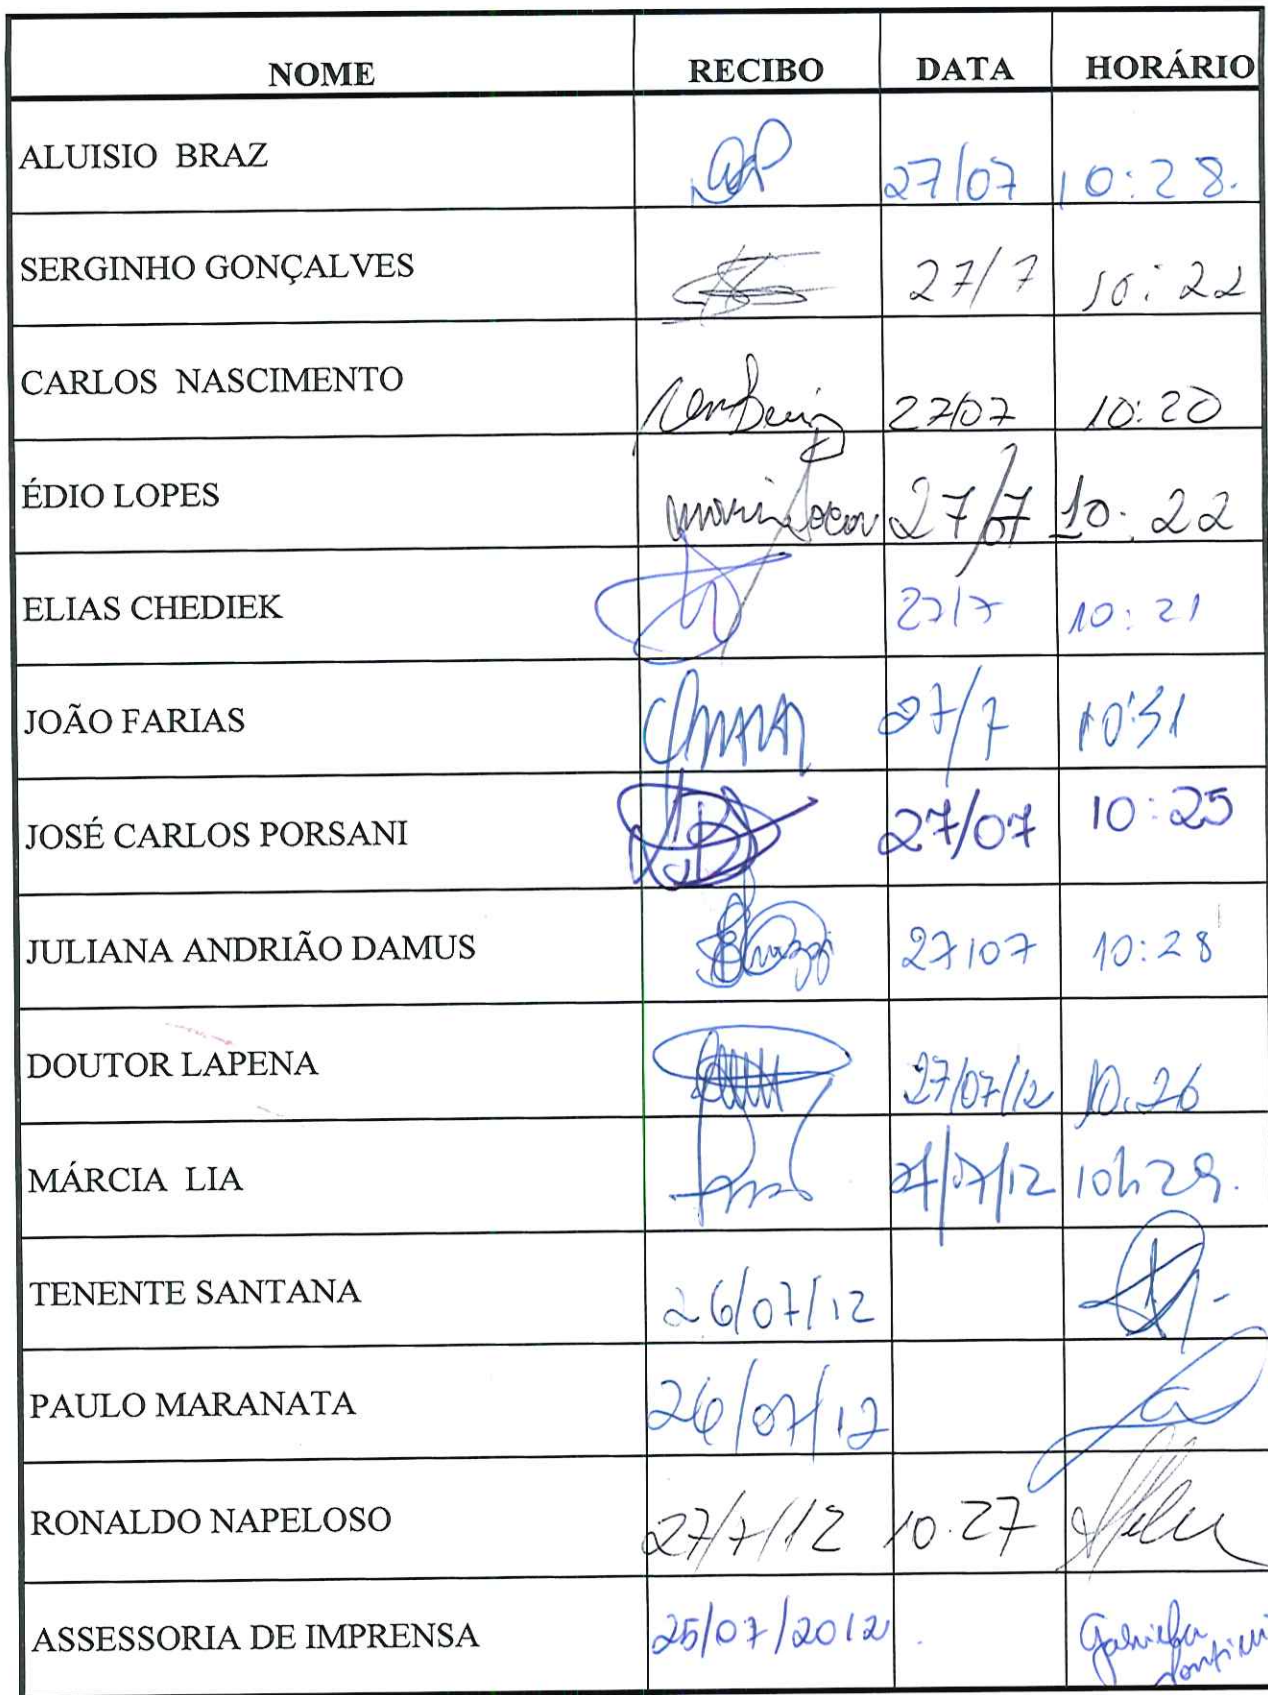 NOME RECIBO DATA HORÁRIO
ALUISIO BRAZ 27/07 10:28.
SERGINHO GONÇALVES 27/7 10:22
CARLOS NASCIMENTO 27/07 10:20
ÉDIO LOPES 27/7 10:22
ELIAS CHEDIEK 27/7 10:21
JOÃO FARIAS 27/7 10:31
JOSÉ CARLOS PORSANI 27/07 10:25
JULIANA ANDRIÃO DAMUS 27/07 10:28
DOUTOR LAPENA 27/07/12 10:26
MÁRCIA LIA 27/07/12 10h29.
TENENTE SANTANA 26/07/12
PAULO MARANATA 26/07/12
RONALDO NAPELOSO 27/7/12 10:27
ASSESSORIA DE IMPRENSA 25/07/2012 Gabriela